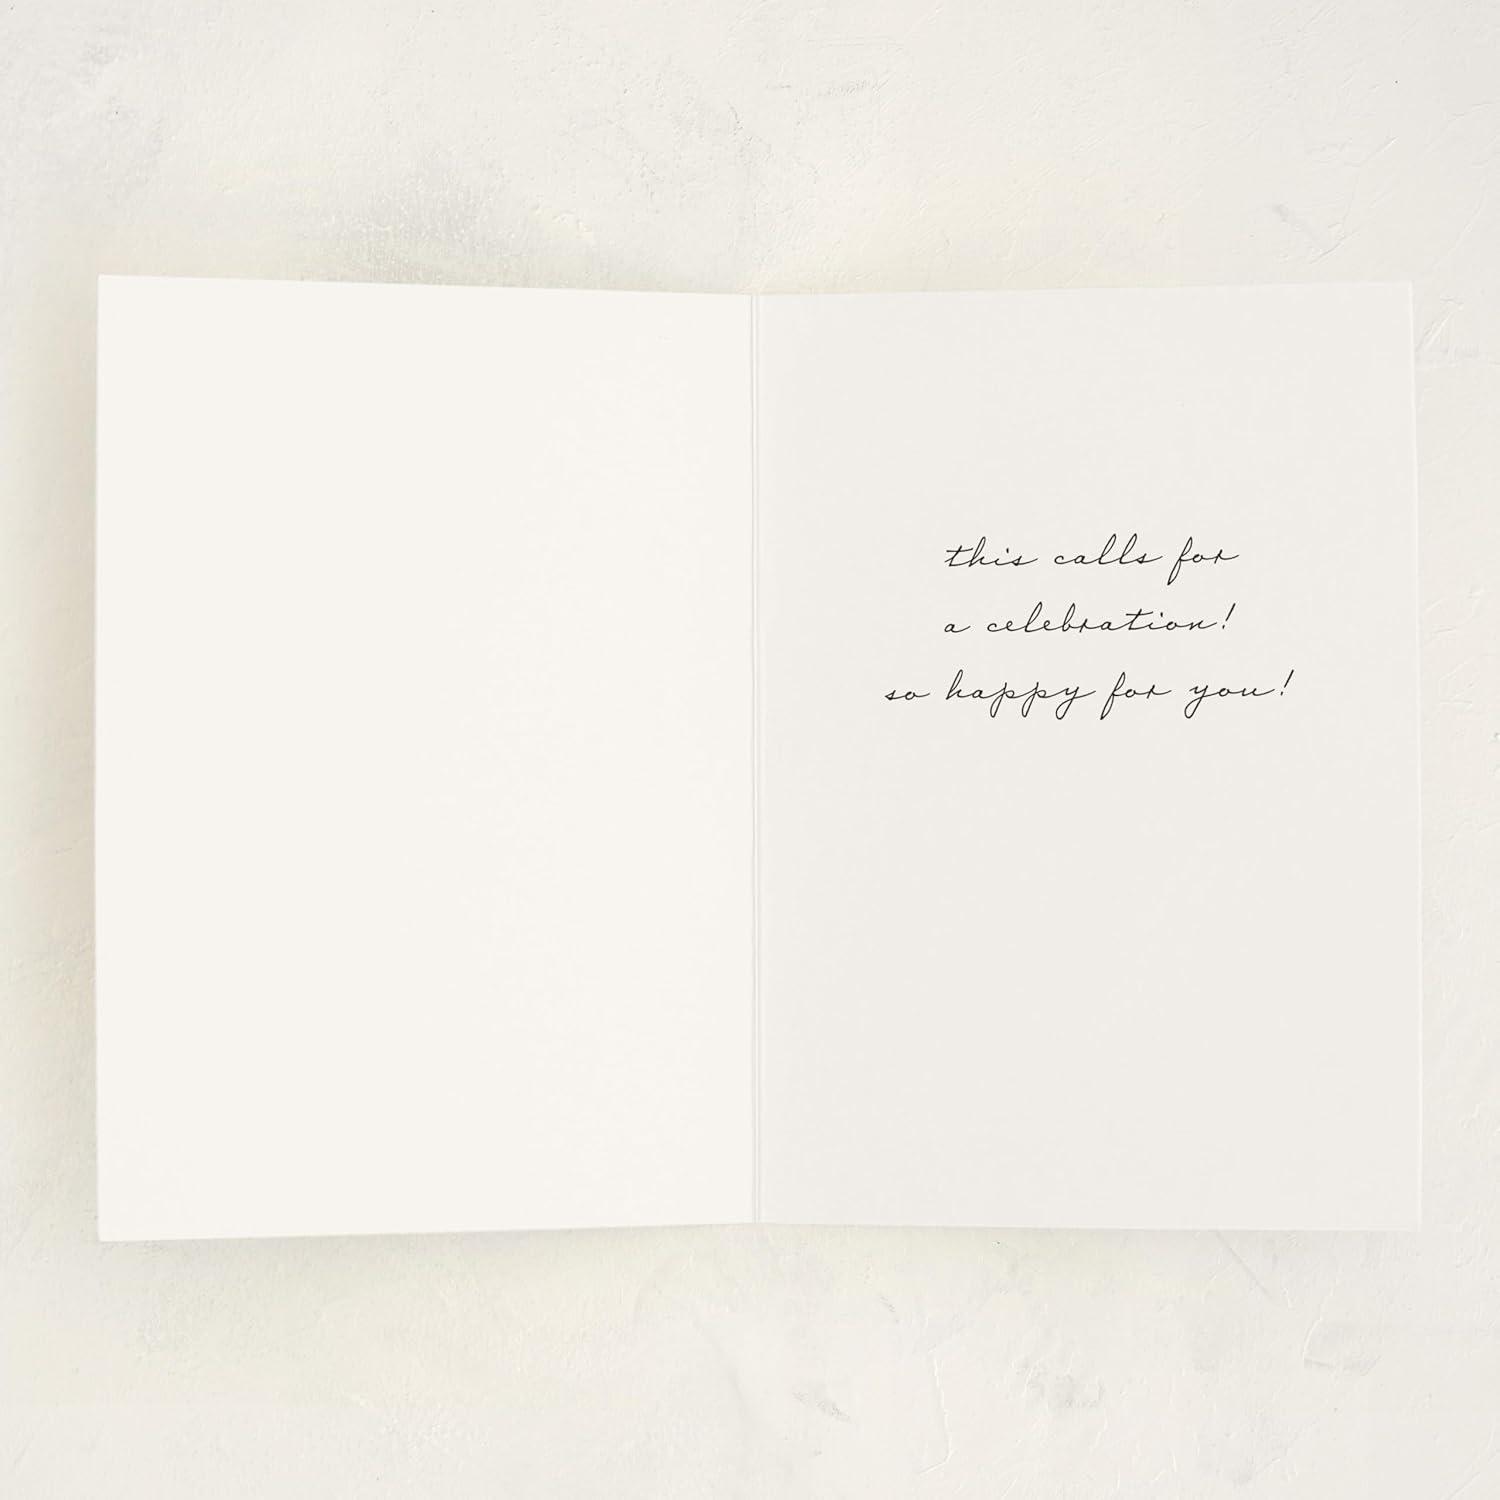 this calls for
a celebration!
so happy for you!